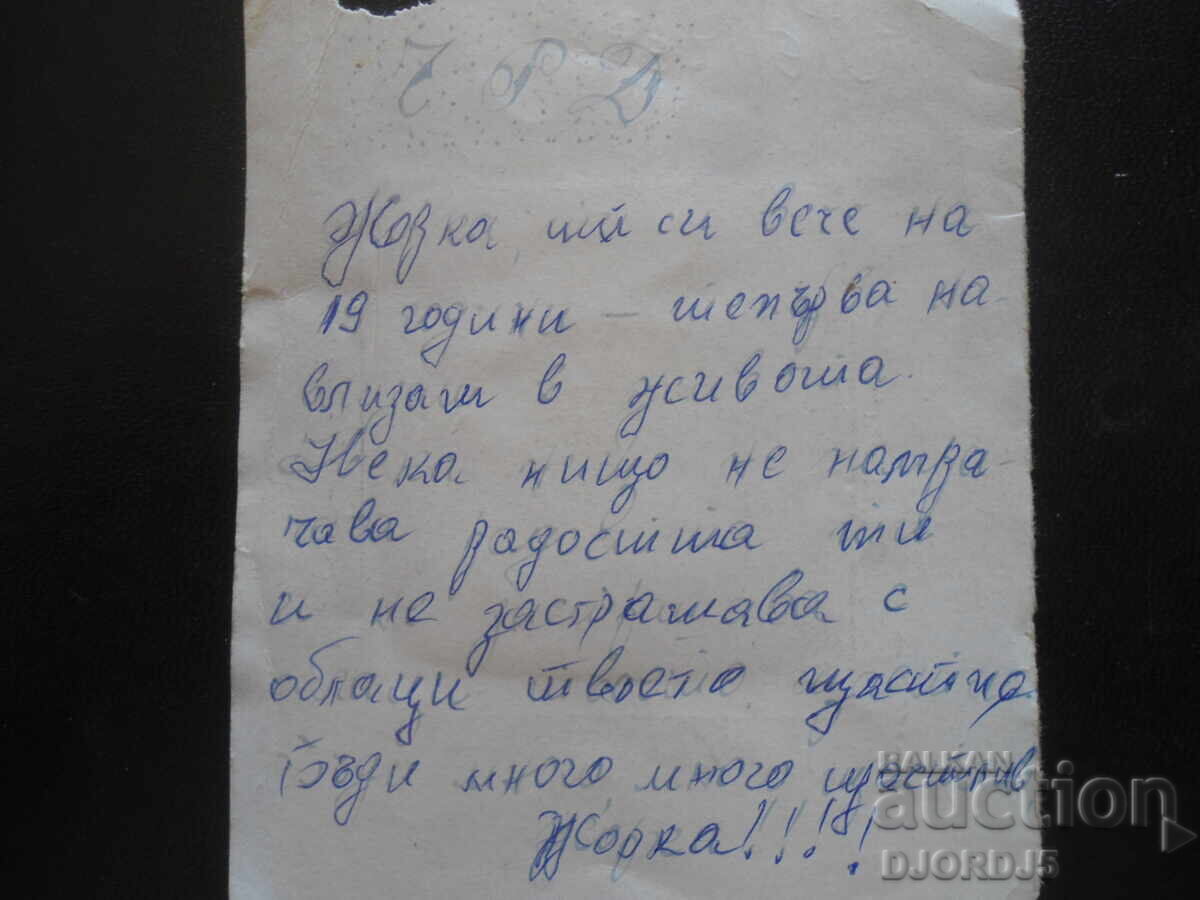 Ч Р Д
Жорка, ти си вече на
19 години – тепърва на-
влизаш в живота.
Нека нищо не помра-
чава радостта ти
и не застрашава с
облаци твоето щастие
Бъди много, много щастлив,
Жорка!!!!
BALKAN
auction
DJORDJ5